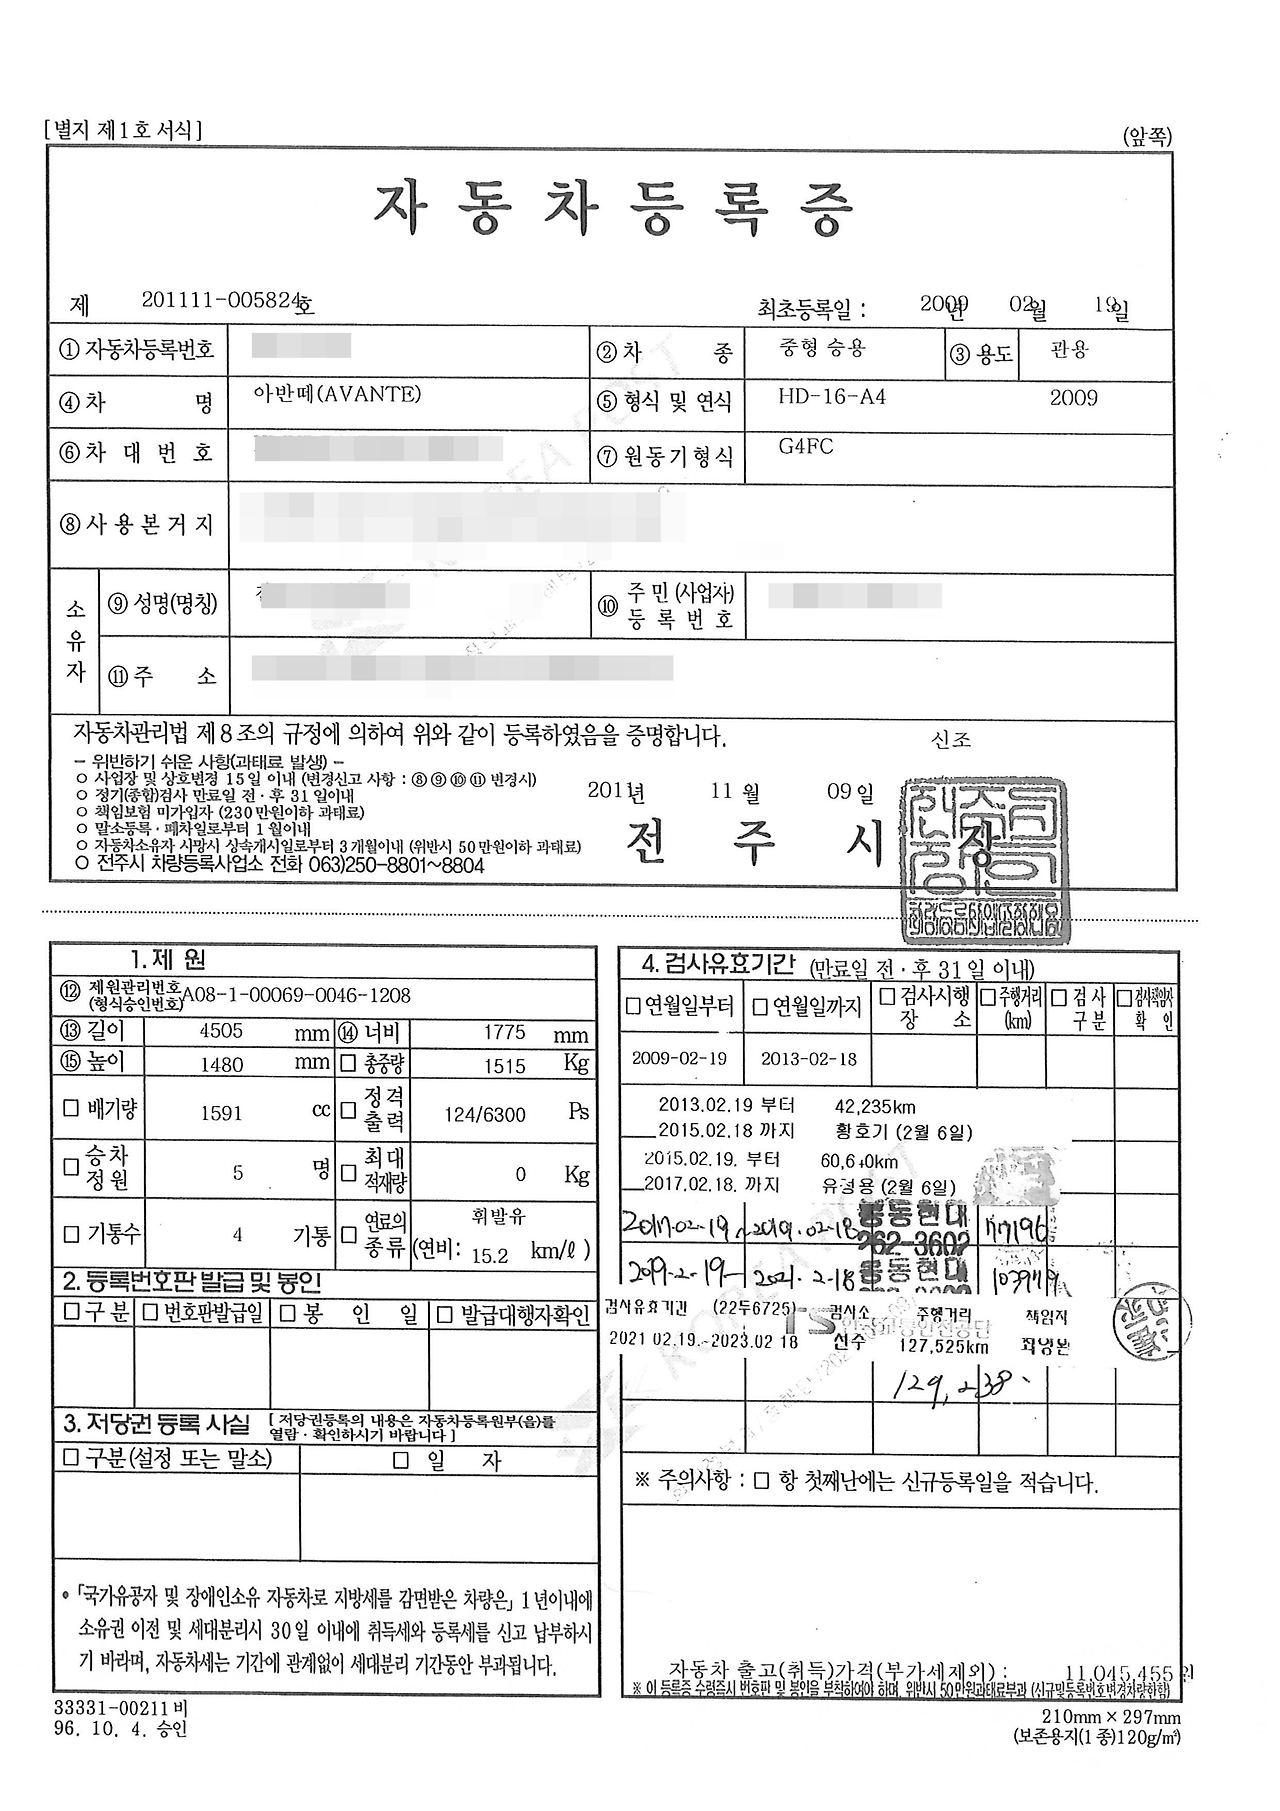 [별지 제1호 서식]
(앞쪽)
자동차등록증
제 201111-005824호
최초등록일 : 2009년 02월 19일
① 자동차등록번호
② 차 종 중형 승용
③ 용도 관용
④ 차 명 아반떼(AVANTE)
⑤ 형식 및 연식 HD-16-A4 2009
⑥ 차 대 번 호
⑦ 원동기형식 G4FC
⑧ 사 용 본 거 지
소유자
⑨ 성명(명칭)
⑩ 주 민 (사업자) 등 록 번 호
⑪ 주 소
자동차관리법 제8조의 규정에 의하여 위와 같이 등록하였음을 증명합니다.
신조
- 위반하기 쉬운 사항(과태료 발생) -
○ 사업장 및 상호변경 15일 이내 (변경신고 사항 : ⑧⑨⑩⑪ 변경시)
○ 정기(종합)검사 만료일 전·후 31일이내
○ 책임보험 미가입자 (230만원이하 과태료)
○ 말소등록·폐차일로부터 1월이내
○ 자동차소유자 사망시 상속개시일로부터 3개월이내 (위반시 50만원이하 과태료)
○ 전주시 차량등록사업소 전화 063)250-8801~8804
2011년 11월 09일
전 주 시 장
1. 제 원
⑫ 제원관리번호 (형식승인번호) A08-1-00069-0046-1208
⑬ 길이 4505 mm ⑭ 너비 1775 mm
⑮ 높이 1480 mm □ 총중량 1515 Kg
□ 배기량 1591 cc □ 정격출력 124/6300 Ps
□ 승차정원 5 명 □ 최대적재량 0 Kg
□ 기통수 4 기통 □ 연료의종류 휘발유 (연비: 15.2 km/ℓ)
2. 등록번호판 발급 및 봉인
□ 구 분 □ 번호판발급일 □ 봉 인 일 □ 발급대행자확인
3. 저당권 등록 사실 [ 저당권등록의 내용은 자동차등록원부(을)를 열람·확인하시기 바랍니다 ]
□ 구분(설정 또는 말소) □ 일 자
• 「국가유공자 및 장애인소유 자동차로 지방세를 감면받은 차량은」 1년이내에
소유권 이전 및 세대분리시 30일 이내에 취득세와 등록세를 신고 납부하시
기 바라며, 자동차세는 기간에 관계없이 세대분리 기간동안 부과됩니다.
33331-00211비
96. 10. 4. 승인
4. 검사유효기간 (만료일 전·후 31일 이내)
□ 연월일부터 □ 연월일까지 □ 검사시행장소 □ 주행거리(km) □ 검사구분 □ 검사책임자확인
2009-02-19 2013-02-18
2013.02.19 부터 42,235km
2015.02.18 까지 황호기 (2월 6일)
2015.02.19. 부터
2017.02.18. 까지 유경용 (2월 6일)
2017-02-19 ~ 2019.02-18 봉동현대 262-3602 77196
2019-2-19 - 2021.2-18 봉동현대 103979
검사유효기간 (22두6725) TS 검사소 주행거리 책임자
한국교통안전공단
2021 02.19.~2023.02 18 127,525km
129,238
※ 주의사항 : □ 항 첫째난에는 신규등록일을 적습니다.
자동차 출고(취득)가격(부가세제외) : 11,045,455원
※ 이 등록증 수령즉시 번호판 및 봉인을 부착하여야 하며, 위반시 50만원과태료부과 (신규및등록번호변경차량한함)
210mm×297mm
(보존용지(1종)120g/㎡)
KOREA POST
KOREA POST